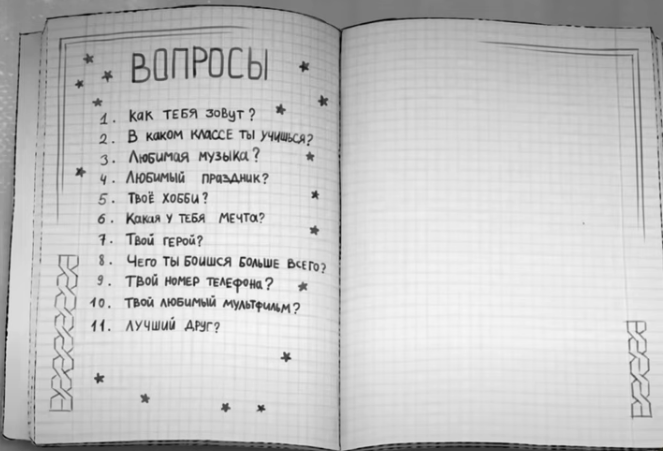 ВОПРОСЫ
1. Как тебя зовут?
2. В каком классе ты учишься?
3. Любимая музыка?
4. Любимый праздник?
5. Твоё хобби?
6. Какая у тебя мечта?
7. Твой герой?
8. Чего ты боишся больше всего?
9. Твой номер телефона?
10. Твой любимый мультфильм?
11. Лучший друг?